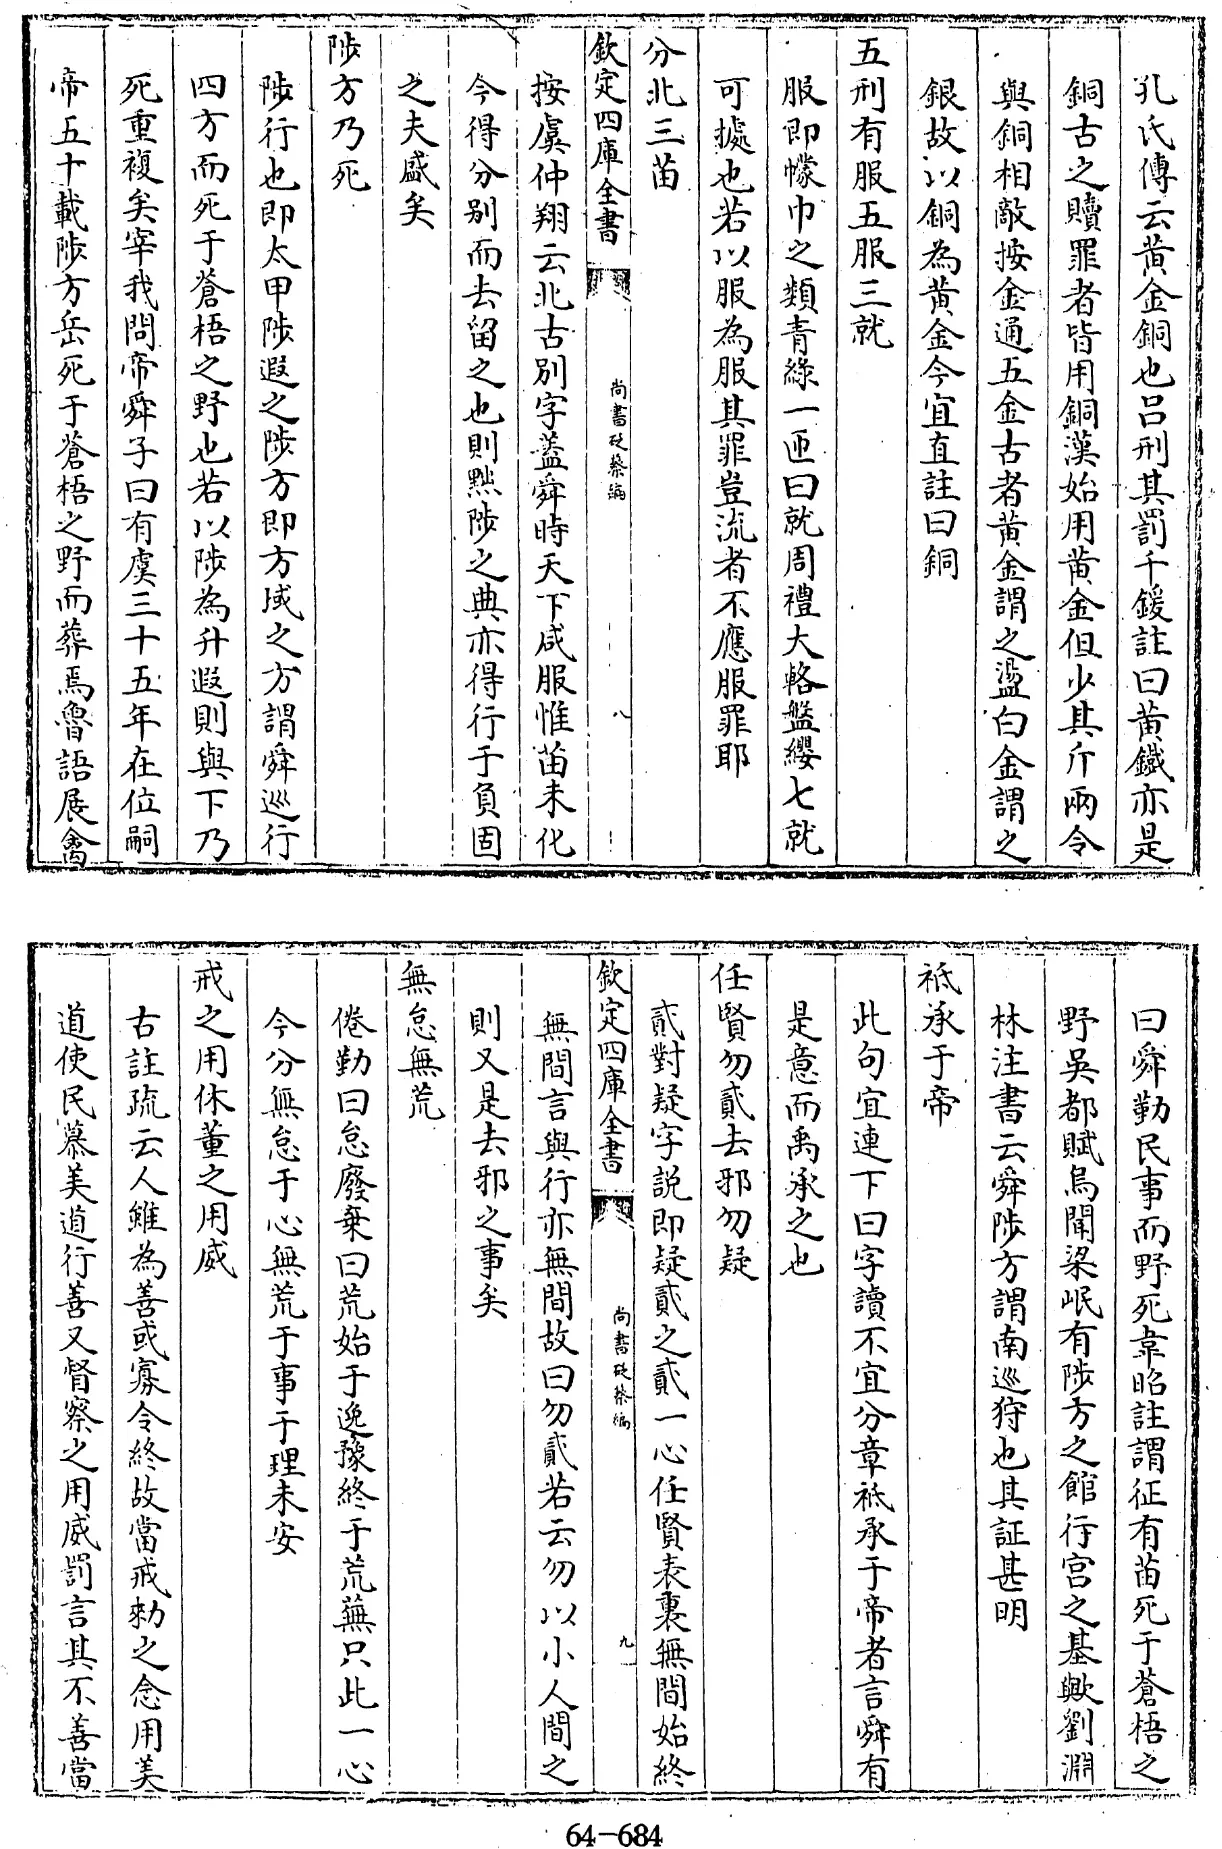 孔氏傳云黄金銅也吕刑其罰千鍰註曰黄鐵亦是
銅古之贖罪者皆用銅漢始用黄金但少其斤兩令
與銅相敵按金通五金古者黄金謂之盪白金謂之
銀故以銅為黄金今宜直註曰銅
五刑有服五服三就
服即幪巾之類青綠一匝曰就周禮大輅盤纓七就
可據也若以服為服其罪豈流者不應服罪耶
分北三苗
欽定四庫全書
尚書砭蔡編
八
按虞仲翔云北古别字葢舜時天下咸服惟苗未化
今得分别而去留之也則黜陟之典亦得行于負固
之夫盛矣
陟方乃死
陟行也即太甲陟遐之陟方即方域之方謂舜巡行
四方而死于蒼梧之野也若以陟為升遐則與下乃
死重複矣宰我問帝舜子曰有虞三十五年在位嗣
帝五十載陟方岳死于蒼梧之野而葬焉魯語展禽
曰舜勤民事而野死韋昭註謂征有苗死于蒼梧之
野吳都賦烏聞梁岷有陟方之館行宫之基歟劉淵
林注書云舜陟方謂南巡狩也其証甚明
祗承于帝
此句宜連下曰字讀不宜分章祗承于帝者言舜有
是意而禹承之也
任賢勿貳去邪勿疑
貳對疑字說即疑貳之貳一心任賢表裏無間始終
欽定四庫全書
尚書砭蔡編
九
無間言與行亦無間故曰勿貳若云勿以小人間之
則又是去邪之事矣
無怠無荒
倦勤曰怠廢棄曰荒始于逸豫終于荒蕪只此一心
今分無怠于心無荒于事于理未安
戒之用休董之用威
古註疏云人雖為善或寡令終故當戒勑之念用美
道使民慕美道行善又督察之用威罰言其不善當
64-684